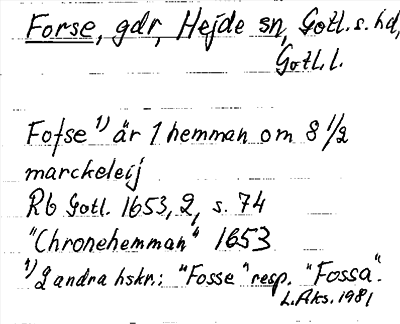 Forse, gdr, Hejde sn, Gotl. s. hd,
Gotl. l.
Fosse 1) är 1 hemman om 8 1/2
marckeleij
Rb Gotl. 1653, 2, s. 74
"Chronehemman" 1653
1) 2 andra hskr.: "Fosse" resp. "Fossa".
L. Aks. 1981